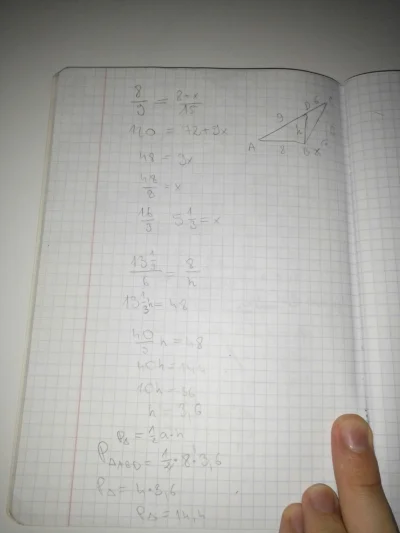 8/9 = 8+x/15
120 = 72+9x
48 = 9x
48/9 = x
16/3 5 1/3 = x
13 1/3 / 6 = 8/h
13 1/3 h = 48
40/3 h = 48
40h = 144
10h = 36
h = 3,6
P△ = 1/2 a·h
P△ABD = 1/2 · 8 · 3,6
P△ = 4·3,6
P△ = 14,4
9
D
6
h
A
8
B
x